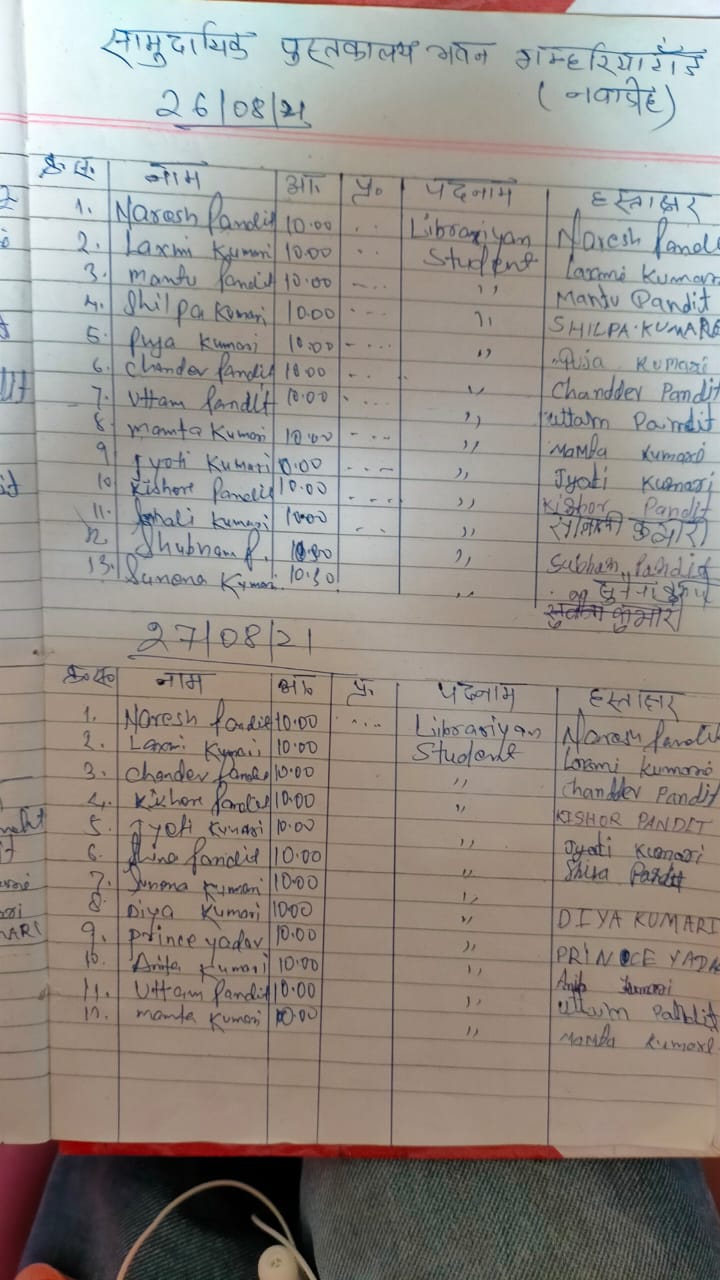 सामुदायिक पुस्तकालय भवन गम्हरियाटाँड़
(नवाडीह)
26/08/21
क्र.सं. नाम आ. प्र. पदनाम हस्ताक्षर
1. Naresh Pandit 10.00 .. Librariyan Naresh Pandi
2. Laxmi Kumari 10.00 .. Student Laxmi Kumar
3. Mantu Pandit 10.00 ... ,, Mantu Pandit
4. Shilpa Kumari 10.00 ... ,, SHILPA.KUMARE
5. Puja Kumari 10.00 .... ,, Puja Kumari
6. Chander Pandit 10.00 .. ,, Chanddev Pandit
7. Uttam Pandit 10.00 .... ,, uttam Pandit
8 Mamta Kumari 10.00 ... ,, Mamta Kumari
9 Jyoti Kumari 10.00 ... ,, Jyoti Kumari
10 Kishore Pandit 10.00 .... ,, Kishor Pandit
11. Kumari 10.00 .. ,, कुमारी
12 Shubnam P. 10.30 ,, Subham Pandit
13. Sunena Kumari 10.30 ,,
कुमारी
27/08/21
क्र.सं. नाम आ. प्र. पदनाम हस्ताक्षर
1. Naresh Pandit 10.00 .... Librariyan Naresh Pandit
2. Laxmi Kumari 10.00 Student Laxmi Kumari
3. Chander Pandit 10.00 ,, Chanddev Pandit
4. Kishore Pandit 10.00 ,, KISHOR PANDIT
5. Jyoti Kumari 10.00 ,, Jyoti Kumari
6. Pandit 10.00 ,, Pandit
7. Sunena Kumari 10.00 ,,
8. Diya Kumari 10.00 ,, DIYA KUMARI
9. Prince yadav 10.00 ,, PRINCE YADA
10. Anita Kumari 10.00 ,, Anita Kumari
11. Uttam Pandit 10.00 ,, uttam Pandit
12. Mamta Kumari 10.00 ,, Mamta Kumari